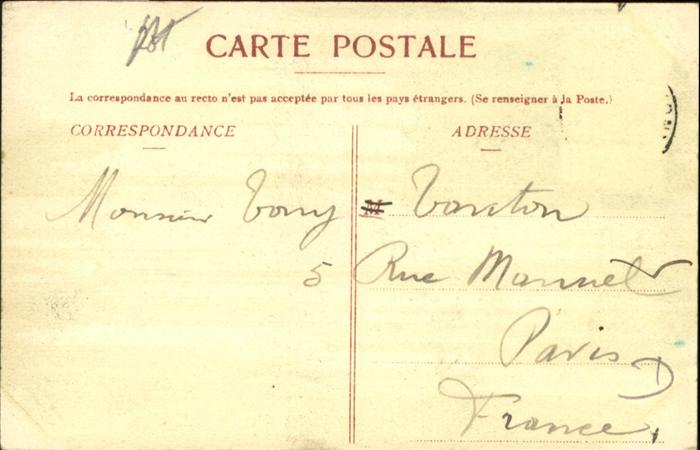 CARTE POSTALE
La correspondance au recto n'est pas acceptée par tous les pays étrangers. (Se renseigner à la Poste.)
CORRESPONDANCE
ADRESSE
Monsieur Tony M
5 Rue Mannel
Paris
France